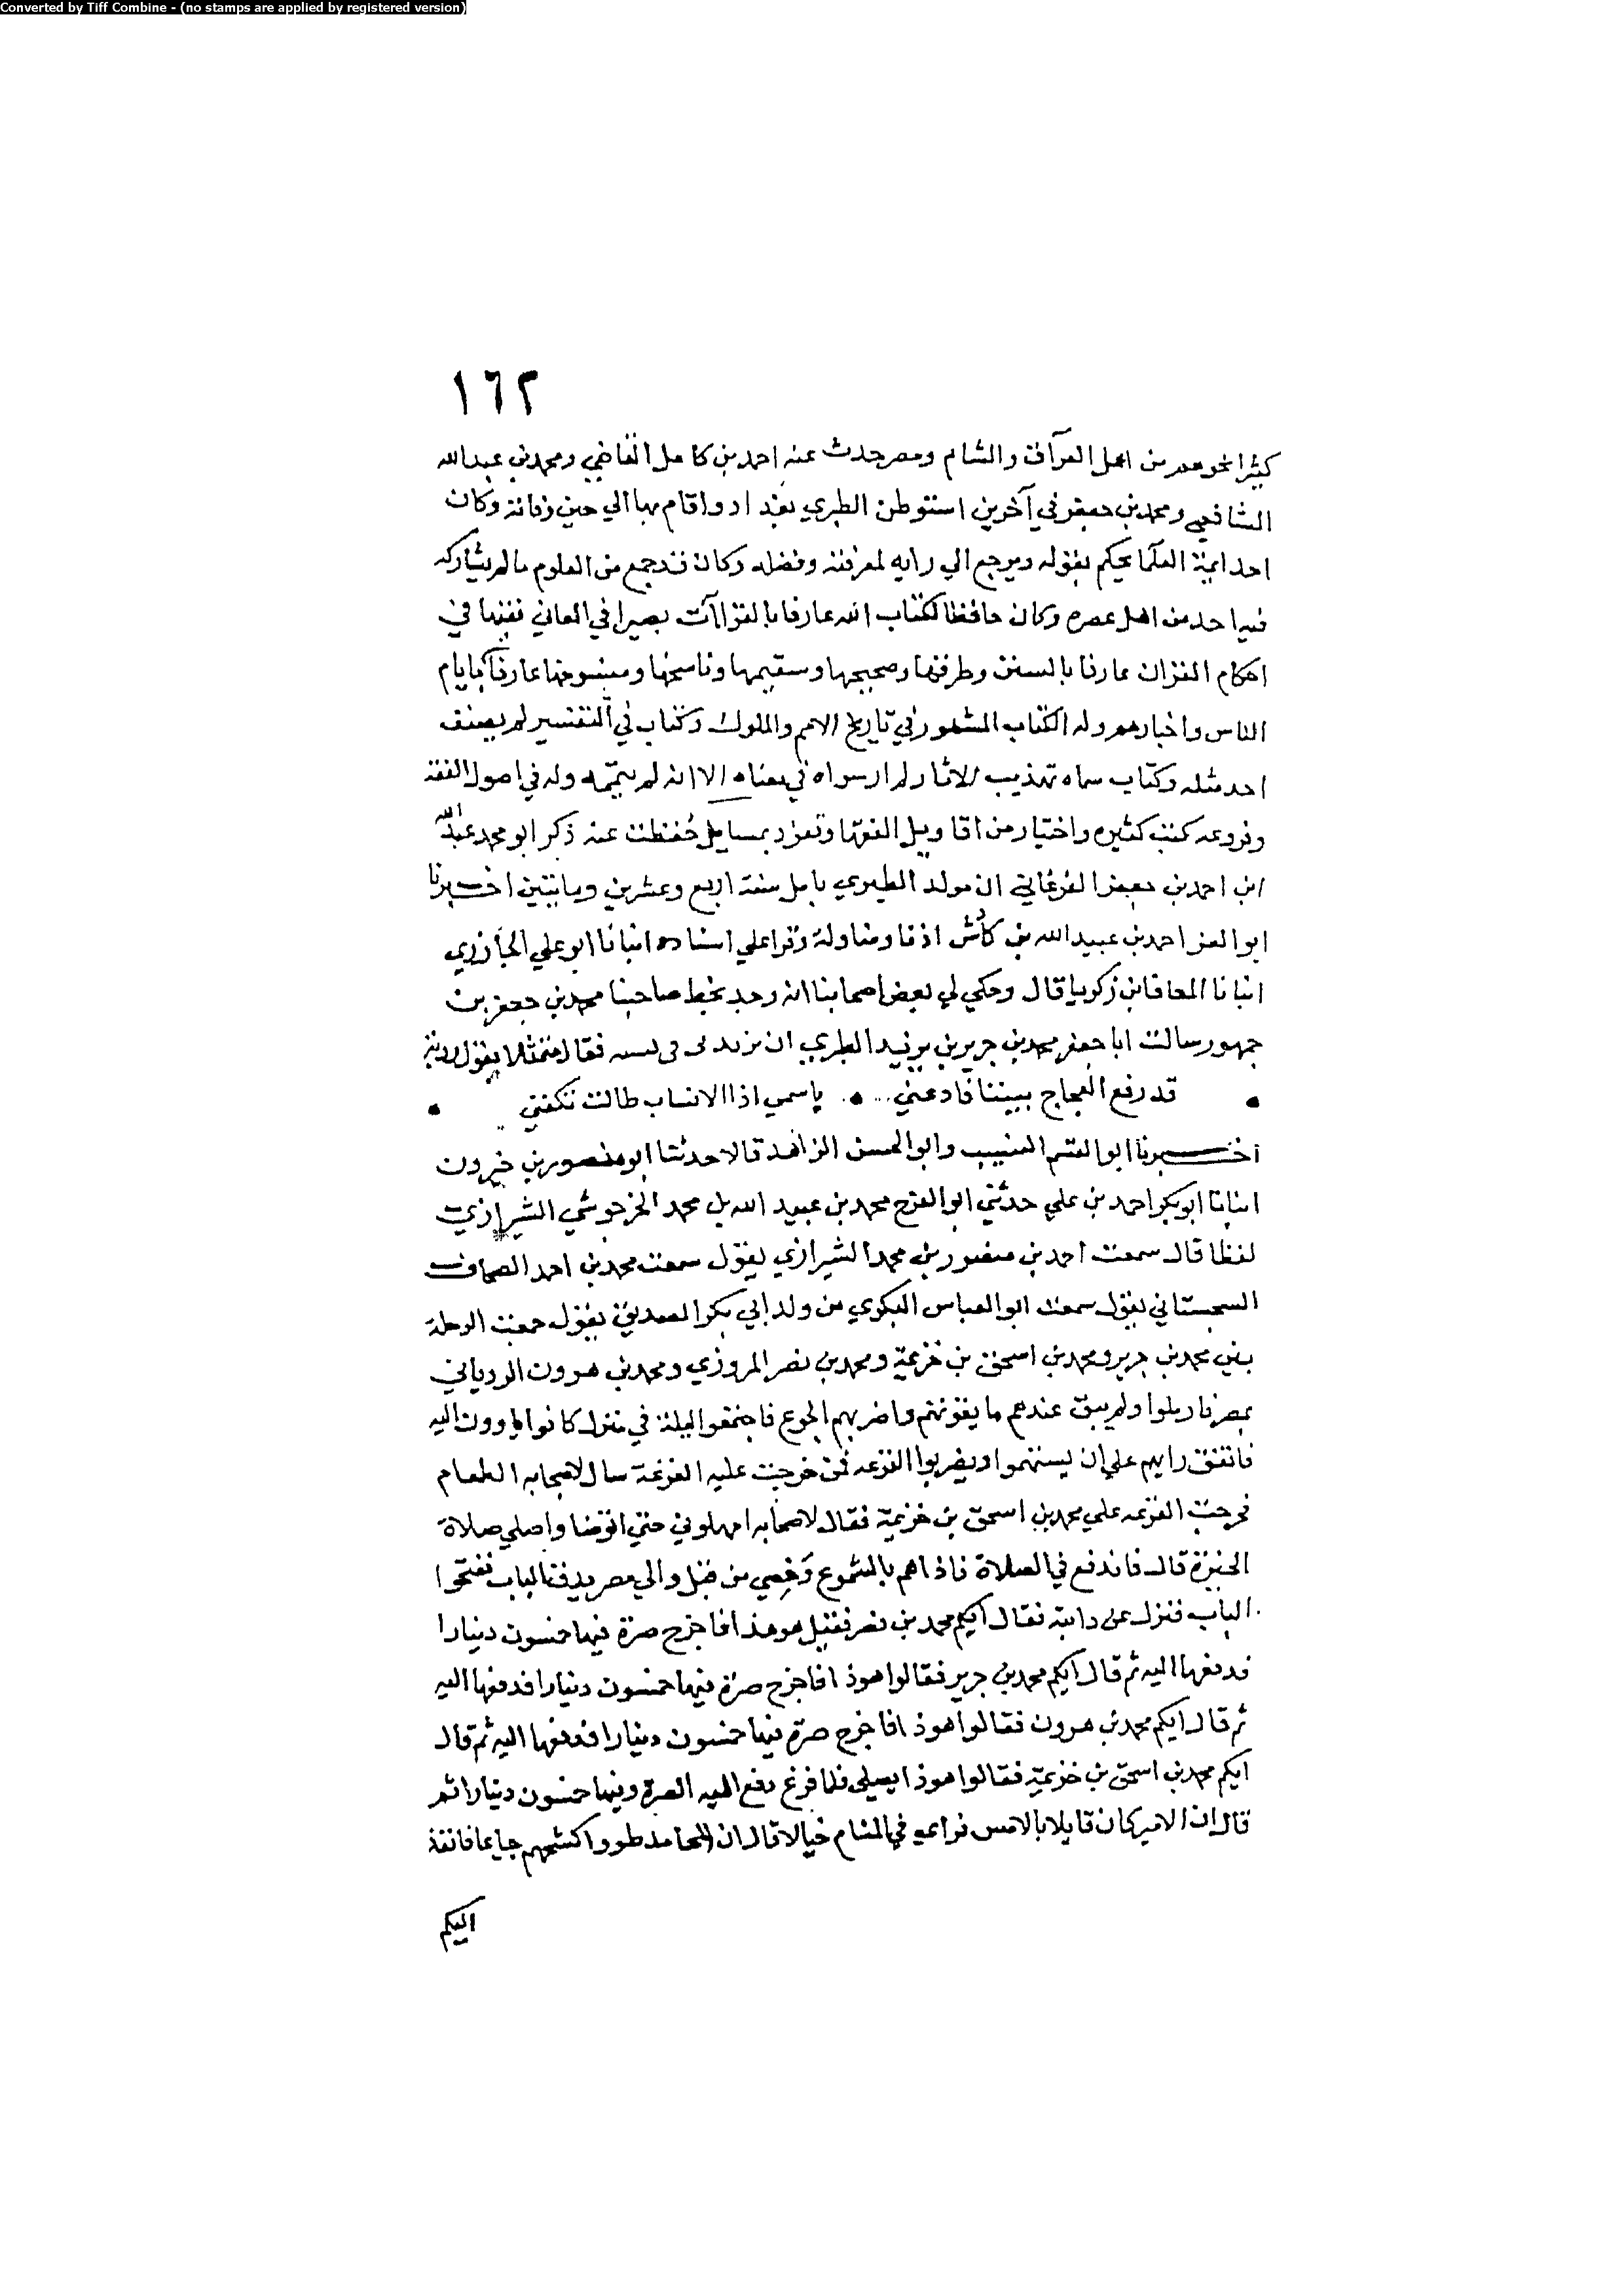 Converted by Tiff Combine - (no stamps are applied by registered version)
١٦٢
كثيرا نحوهم من اهل العراق والشام ومصر حدث عنه احمد بن كامل القاضي ومحمد بن عبدالله
الشافعي ومحمد بن جعفر في آخرين استوطن الطبري بغداد واقام بها الي حين وفاته وكان
احد ايمة العلما يحكم بقوله ويرجع الي رايه لمعرفته وفضله وكان قد جمع من العلوم ما لم يشاركه
فيه احد من اهل عصره وكان حافظا لكتاب الله عارفا بالقراآت بصيرا في المعاني فقيها في
احكام القران عارفا بالسنن وطرقها وصحيحها وسقيمها وناسخها ومنسوخها عارفا بايام
الناس واخبارهم وله الكتاب المشهور في تاريخ الامم والملوك وكتاب في التفسير لم يصنف
احد مثله وكتاب سماه تهذيب الاثار لم ار سواه في معناه الا انه لم يتمه وله في اصول الفقه
وفروعه كتب كثيره واختيار من اقاويل الفقها وتفرد بمسايل حُفظت عنه ذكر ابو محمد عبدالله
ابن احمد بن جعفر الفرغاني ان مولد الطبري بامل سنة اربع وعشرين ومايتين اخبرنا
ابو العز احمد بن عبيد الله بن كادش اذنا ومناولة وقرا علي اسناده انبانا ابو علي الجازري
انبانا المعافا بن زكريا قال وحكي لي بعض اصحابنا انه وجد بخط صاحبنا محمد بن جعفر بن
جمهور سالت ابا جعفر محمد بن جرير بن يزيد الطبري ان يزيدني في نسبه فقال متمثلا بقول روبة
قد رفع العجاج بيننا فادعني ... ياسمي اذا الانساب طالت تكفني
اخبرنا ابو القسم النسيب وابو الحسن الزاهد قالا حدثنا ابو منصور بن خيرون
انبانا ابو بكر احمد بن علي حدثني ابو الفرج محمد بن عبيد الله بن محمد الخرجوشي الشيرازي
لفظا قال سمعت احمد بن منصور بن محمد الشيرازي يقول سمعت محمد بن احمد الصحاف
السجستاني يقول سمعت ابو العباس البكري من ولد ابي بكر الصديق يقول جمعت الرحلة
بين محمد بن جرير ومحمد بن اسحق بن خزيمة ومحمد بن نصر المروزي ومحمد بن هرون الروياني
بمصر فارملوا ولم يبق عندهم ما يقوتهم واضر بهم الجوع فاجتمعوا ليلة في منزل كانوا ياوون اليه
فاتفق رايهم علي ان يستهموا ويضربوا القرعه فمن خرجت عليه القرعة سال لاصحابه الطعام
فخرجت القرعه علي محمد بن اسحق بن خزيمة فقال لاصحابه امهلوني حتي اتوضا واصلي صلاة
الخيرة قال فاندفع في الصلاة فاذا هم بالشموع وخصي من قبل والي مصر يدق الباب ففتحوا
الباب فنزل عن دابته فقال ايكم محمد بن نصر فقيل هو هذا فاخرج صرة فيها خمسون دينارا
فدفعها اليه ثم قال ايكم محمد بن جرير فقالوا هوذا فاخرج صرة فيها خمسون دينارا فدفعها اليه
ثم قال ايكم محمد بن هرون فقالوا هوذا فاخرج صرة فيها خمسون دينارا فدفعها اليه ثم قال
ايكم محمد بن اسحق بن خزيمة فقالوا هوذا يصلي فلما فرغ دفع اليه الصرة وفيها خمسون دينارا ثم
قال ان الامير كان قايلا بالامس فراعي في المنام خيالا قال ان المحامد طووا كشحهم جياعا فانفذ
اليكم